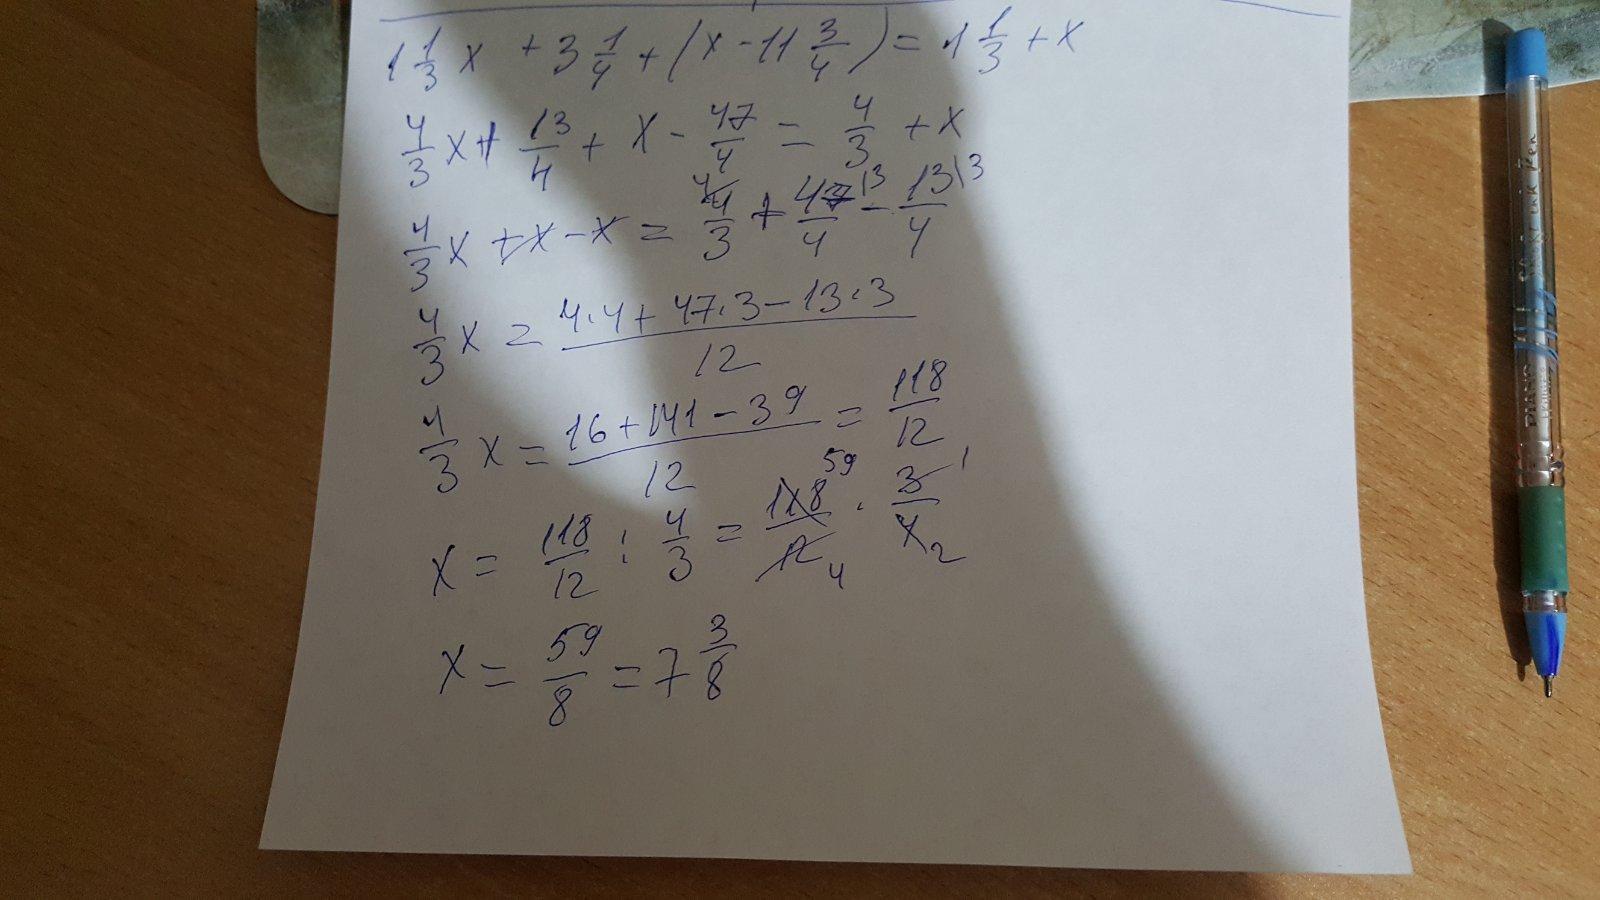 1 1/3 x + 3 1/4 + (x - 11 3/4) = 1 1/3 + x
4/3 x + 13/4 + x - 47/4 = 4/3 + x
4/3 x + x - x = 4/3 \4 + 47/4 \3 - 13/4 \3
4/3 x = (4·4 + 47·3 - 13·3)/12
4/3 x = (16 + 141 - 39)/12 = 118/12
x = 118/12 : 4/3 = 118 59/12 4 · 3 1/4 2
x = 59/8 = 7 3/8
PIANO